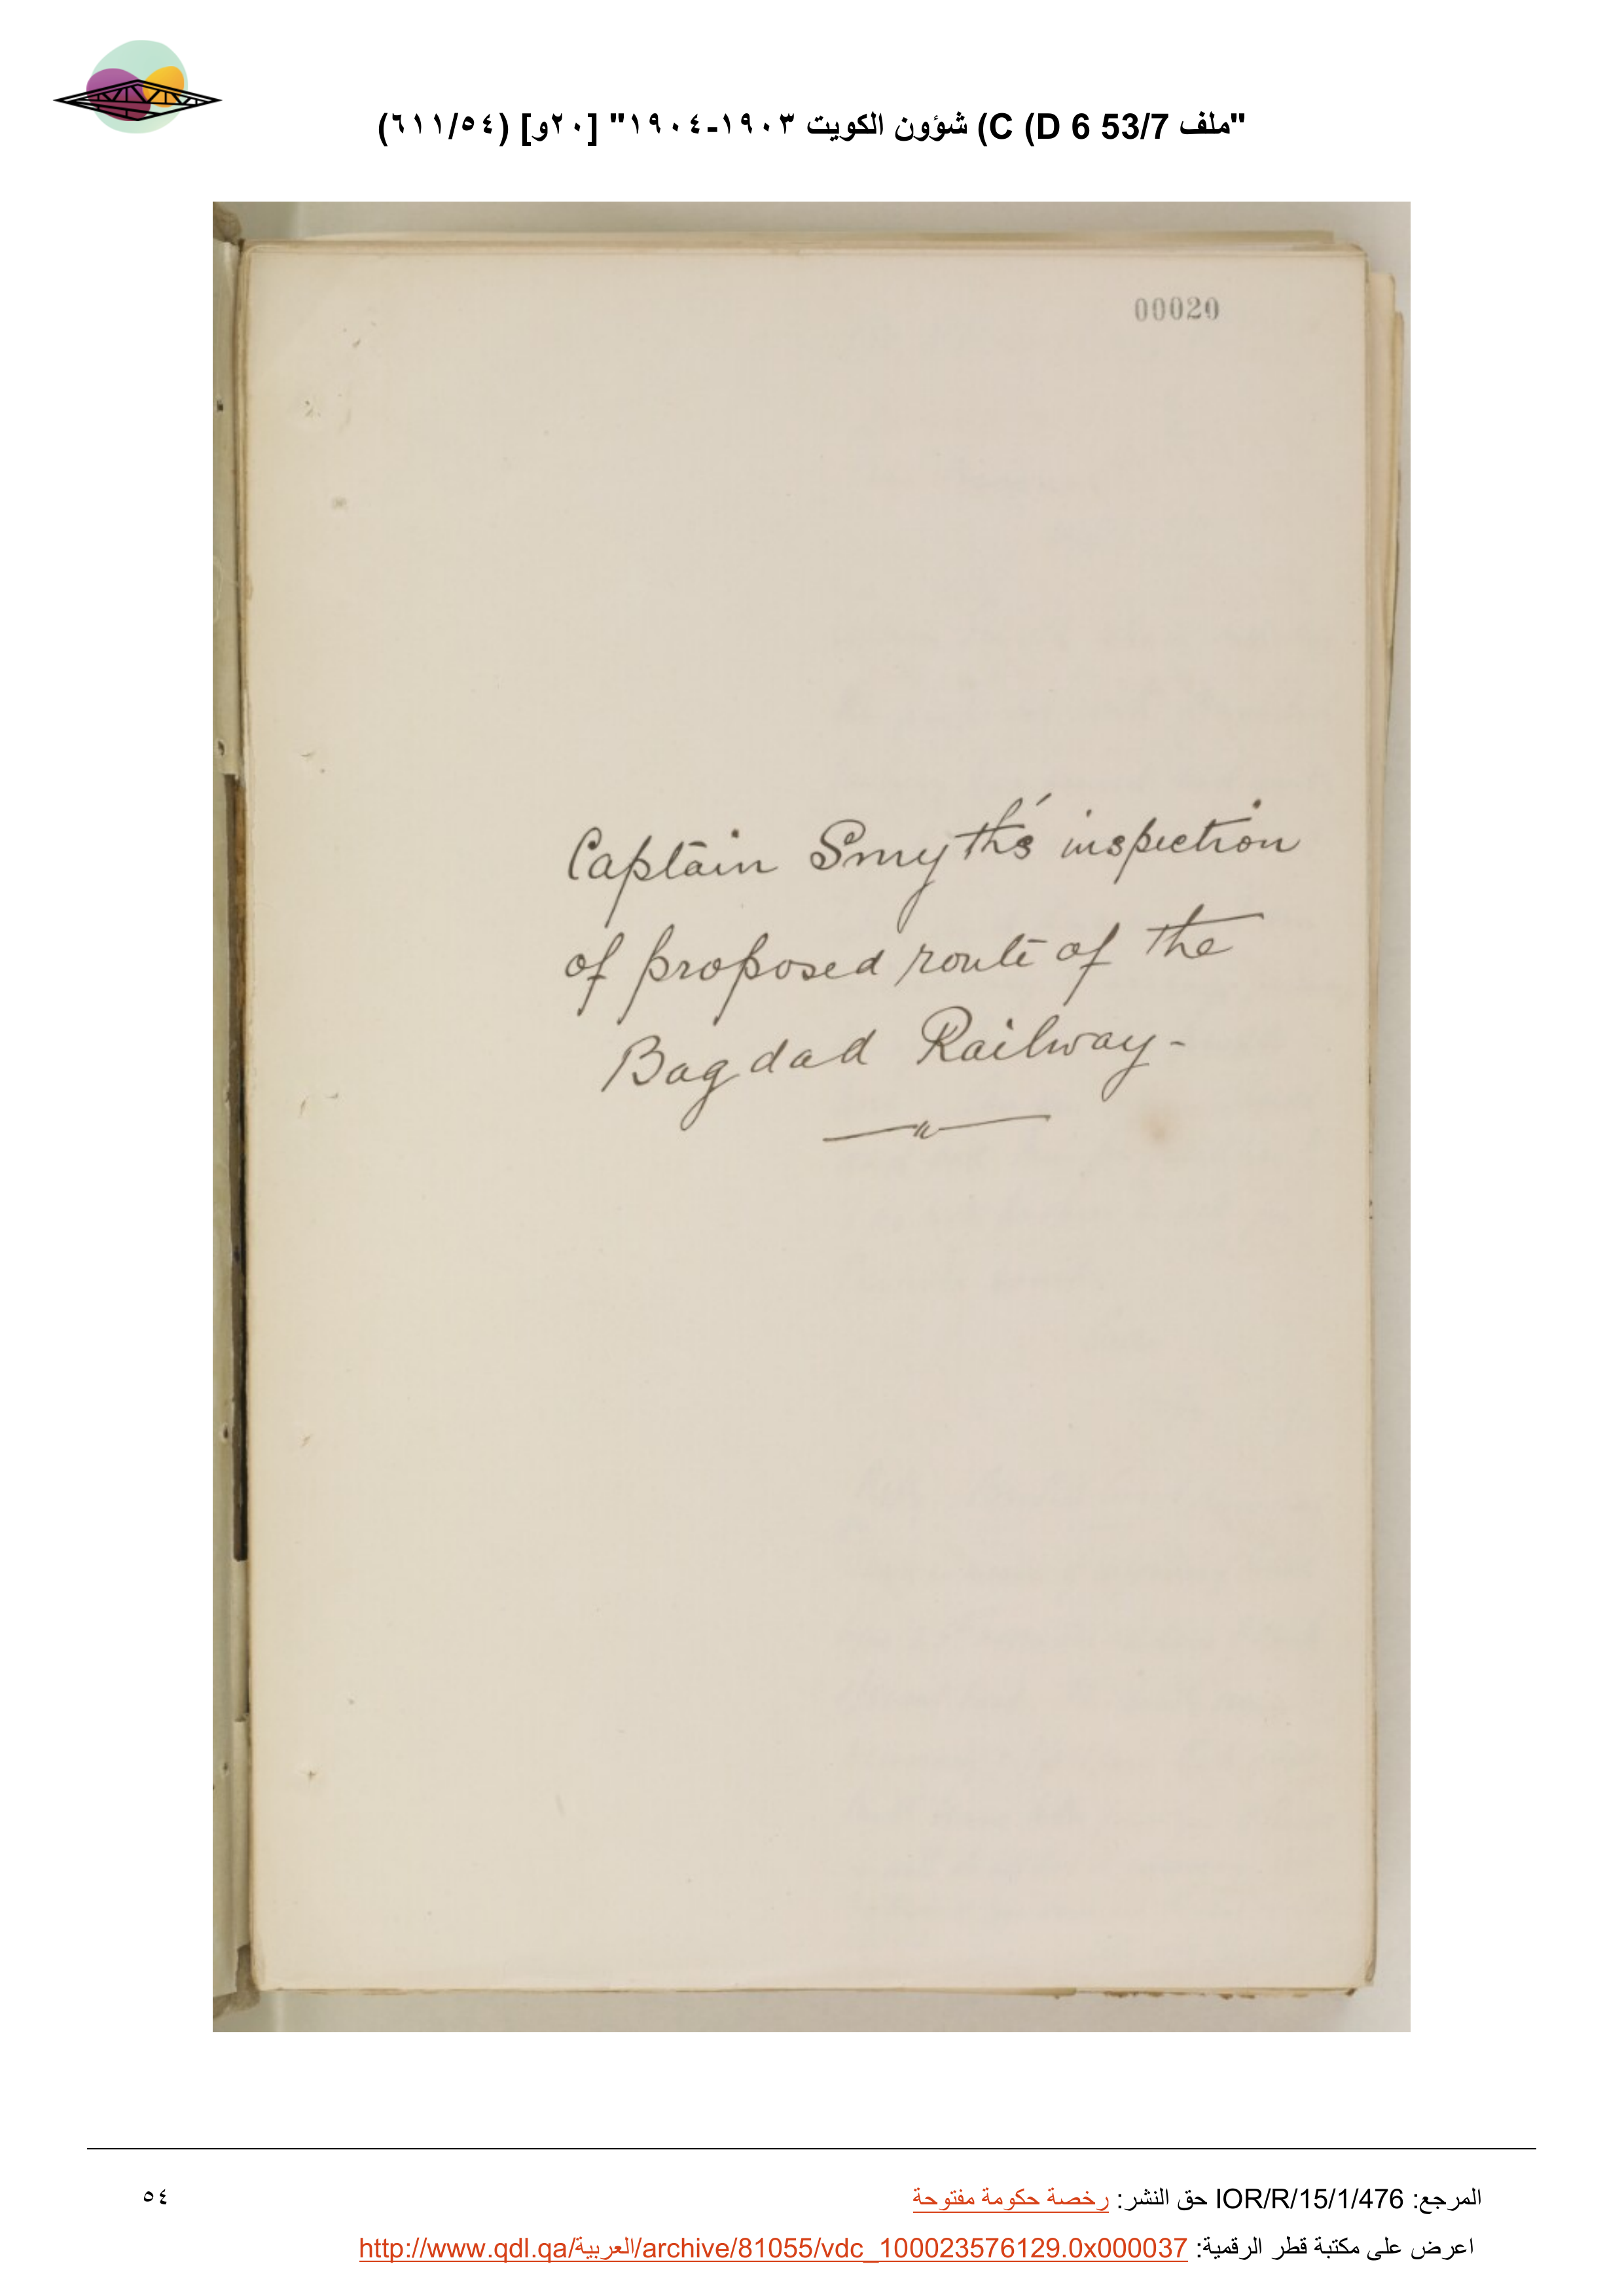 "ملف 53/7 D 6) C) شؤون الكويت ١٩٠٣-١٩٠٤" [٢٠و] (٦١١/٥٤)
00020
Captain Smyth's inspection
of proposed route of the
Bagdad Railway-
المرجع: IOR/R/15/1/476 حق النشر: رخصة حكومة مفتوحة
٥٤
اعرض على مكتبة قطر الرقمية: http://www.qdl.qa/العربية/archive/81055/vdc_100023576129.0x000037